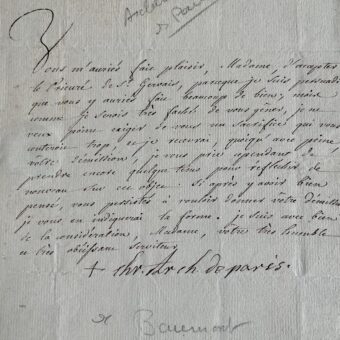 Vous m'auriés fait plaisir, Madame, d'accepter
le Prieuré de St Gervais, parceque je suis persuadé
que vous y auriés fait beaucoup de bien; mais
comme je serois très faché de vous gêner, je ne
veux point exiger de vous un sacrifice qui vous
couteroit trop, et je recevrai, quoiqu'avec peine
votre démission, je vous prie cependant de
prendre encore quelque tems pour reflechir de
nouveau sur cet objet. Si après y avoir bien
pensé, vous persistés à vouloir donner votre démission
je vous en indiquerai la forme. je suis avec bien
de la considération, Madame, votre très humble
et très obéissant serviteur
+ chr. Arch. de paris.
Beaumont